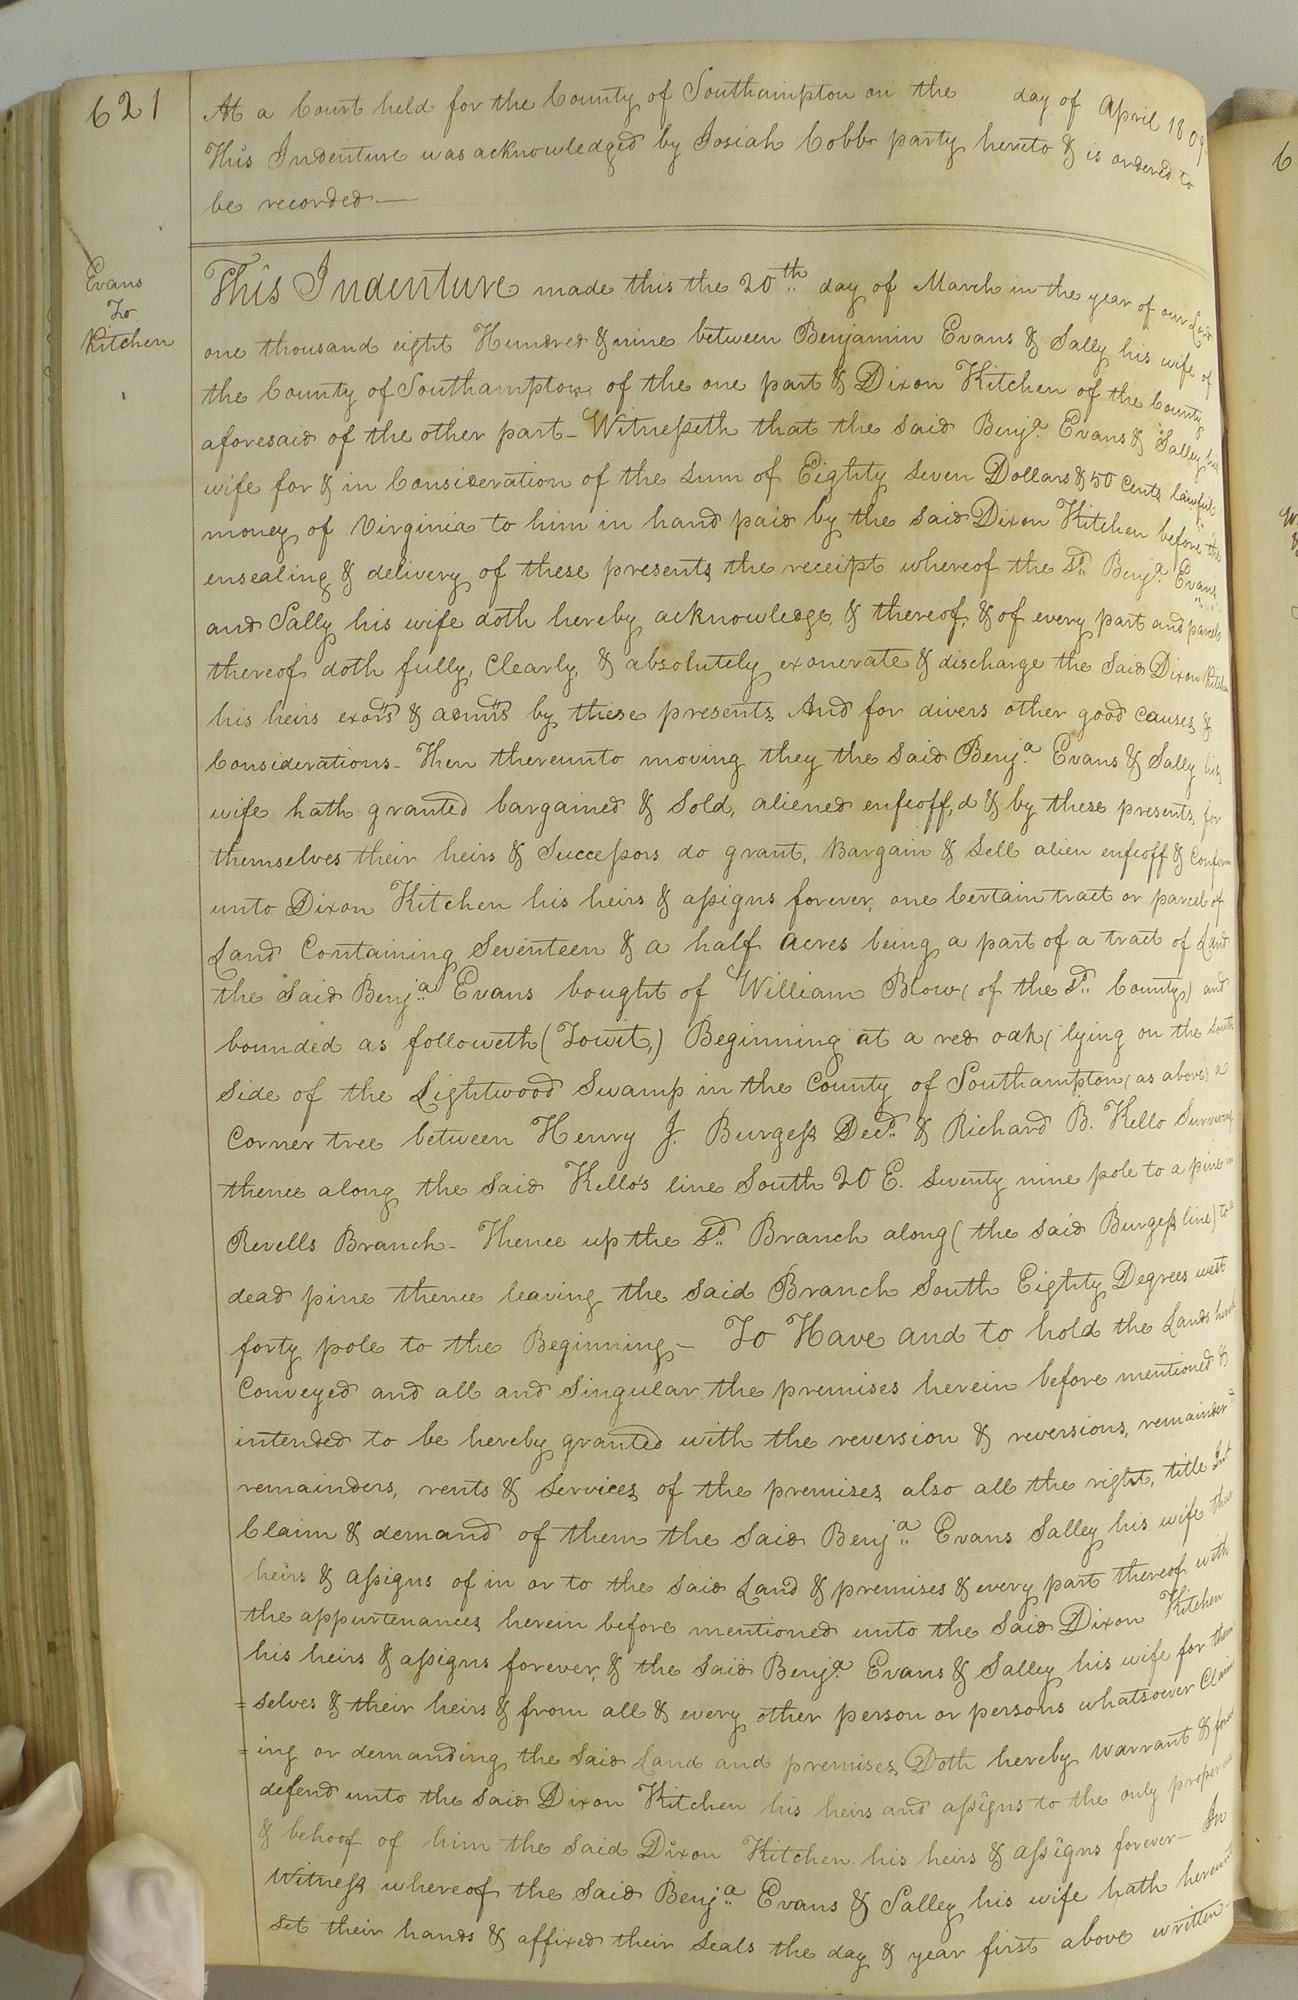 621
At a Court held for the County of Southampton on the day of April 1809.
This Indenture was acknowledged by Josiah Cobb party hereto & is ordered to
be recorded—
Evans
To
Kitchen
This Indenture made this the 20th day of March in the year of our Lord
one thousand eight Hundred & nine between Benjamin Evans & Sally his wife of
the County of Southampton of the one part & Dixon Kitchen of the County
aforesaid of the other part – Witnesseth that the said Benja. Evans & Salley his
wife for & in Consideration of the sum of Eighty seven Dollars & 50 Cents lawful
money of Virginia to him in hand paid by the said Dixon Kitchen before the
ensealing & delivery of these presents the receipt whereof the sd. Benja. Evans
and Sally his wife doth hereby acknowledge, & thereof & of every part and parcel
thereof doth fully, Clearly, & absolutely exonerate & discharge the said Dixon Kitchen
his heirs exors & admrs by these presents And for divers other good causes &
Considerations – Them thereunto moving they the said Benja. Evans & Sally his
wife hath granted bargained & Sold, aliened enfeoff,d & by these presents, for
themselves their heirs & Successors do grant, Bargain & Sell alien enfeoff & Confirm
unto Dixon Kitchen his heirs & assigns forever, one Certain tract or parcel of
Land Containing Seventeen & a half acres being a part of a tract of Land
the said Benja. Evans bought of William Blow (of the sd. County) and
bounded as followeth (Towit,) Beginning at a red oak (lying on the south
side of the Lightwood Swamp in the County of Southampton (as above) a
Corner tree between Henry J. Burgess Decd. & Richard B. Kello
thence along the said Kello's line South 20 E. seventy nine pole to a pine in
Revells Branch – Thence up the sd. Branch along (the said Burgess line) to a
dead pine thence leaving the said Branch South Eighty Degrees west
forty pole to the Beginning – To Have and to hold the Lands
Conveyed and all and singular the premises herein before mentioned &
intended to be hereby granted with the reversion & reversions, remainder &
remainders, rents & services of the premises also all the right, title Int
Claim & demand of them the said Benja. Evans Salley his wife their
heirs & assigns of in or to the said Land & premises & every part thereof with
the appurtenances herein before mentioned unto the said Dixon Kitchen
his heirs & assigns forever, & the said Benja. Evans & Salley his wife for them
=selves & their heirs & from all & every other person or persons whatsoever Claim
=ing or demanding the said Land and premises Doth hereby warrant & forever
defend unto the said Dixon Kitchen his heirs and assigns to the only proper use
& behoof of him the said Dixon Kitchen his heirs & assigns forever – In
Witness whereof the said Benja. Evans & Salley his wife hath hereunto
set their hands & affixed their seals the day & year first above written –